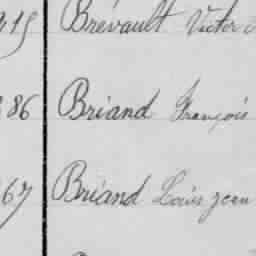 Brévault Victor
86 Briand François
67 Briand Louis Jean